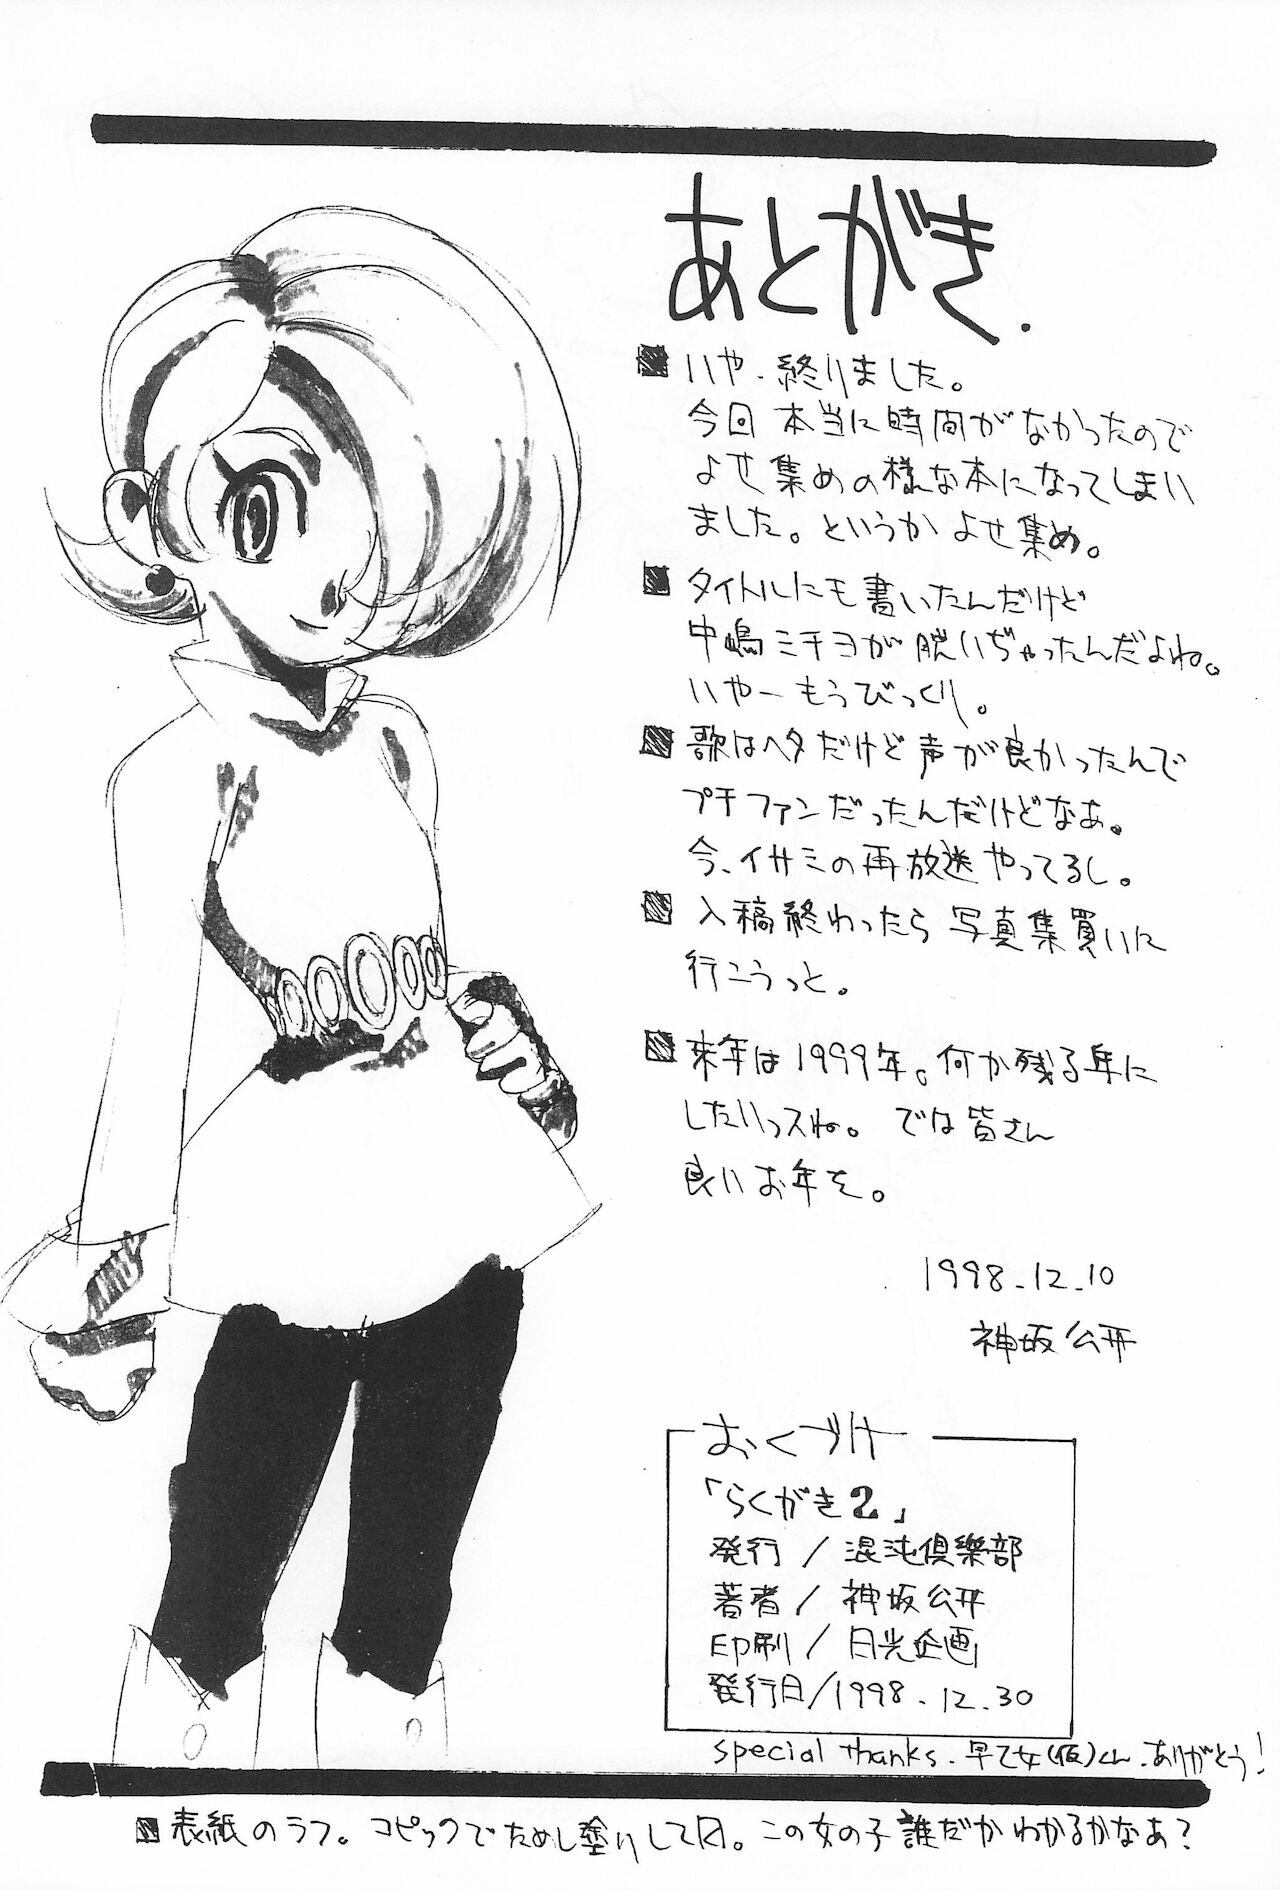 あとがき.
いや、終りました。
今回 本当に時間がなかったので
よせ集めの様な本になってしまい
ました。というか よせ集め。
タイトルにも書いたんだけど
中嶋ミチヨが脱いぢゃったんだよね。
いやーもうびっくり。
歌はヘタだけど声が良かったんで
プチファンだったんだけどなあ。
今、イサミの再放送やってるし。
入稿終わったら写真集買いに
行こうっと。
来年は1999年。何か残る年に
したいっスね。 では皆さん
良いお年を。
1998.12.10
神坂公開
おくづけ
「らくがき2」
発行/混沌倶樂部
著者/神坂公開
印刷/日光企画
発行日/1998.12.30
special thanks. 早乙女(仮)くん.ありがとう!
表紙のラフ。コピックでためし塗りして□。この女の子誰だかわかるかなあ?